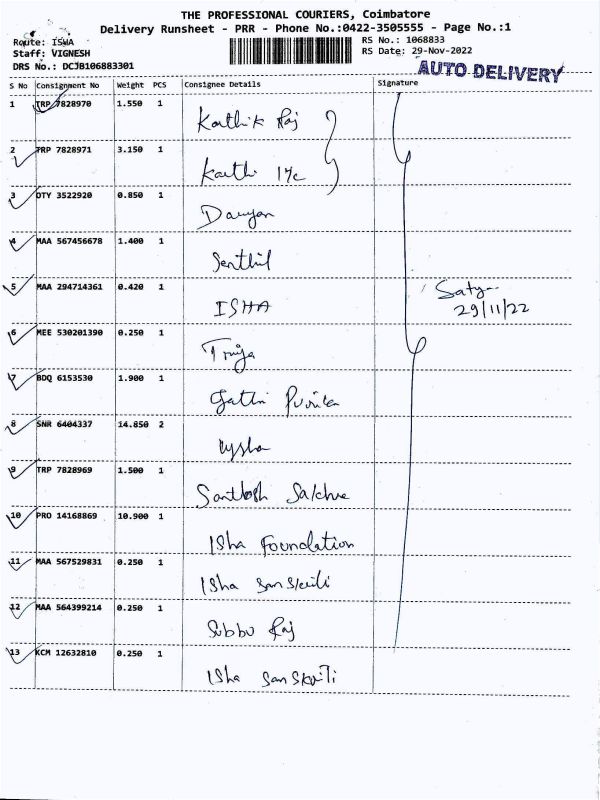 THE PROFESSIONAL COURIERS, Coimbatore
Delivery Runsheet - PRR - Phone No.:0422-3505555 - Page No.:1
Route: ISWA
Staff: VIGNESH
DRS No.: DCJB106883301
RS No.: 1068833
RS Date: 29-Nov-2022
AUTO DELIVERY
S No Consignment No Weight PCS Consignee Details Signature
1 TRP 7828970 1.550 1
Karthik Raj
2 TRP 7828971 3.150 1
Karthi
3 OTY 3522920 0.850 1
4 MAA 567456678 1.400 1
Senthil
5 MAA 294714361 0.420 1
ISHA
Satya
29/11/22
6 MEE 530201390 0.250 1
7 BDQ 6153530 1.900 1
8 SNR 6404337 14.850 2
9 TRP 7828969 1.500 1
Santhosh
10 PRO 14168869 10.900 1
Isha Foundation
11 MAA 567529831 0.250 1
Isha Sanskriti
12 MAA 564399214 0.250 1
Subbu Raj
13 KCM 12632810 0.250 1
Isha Sanskriti